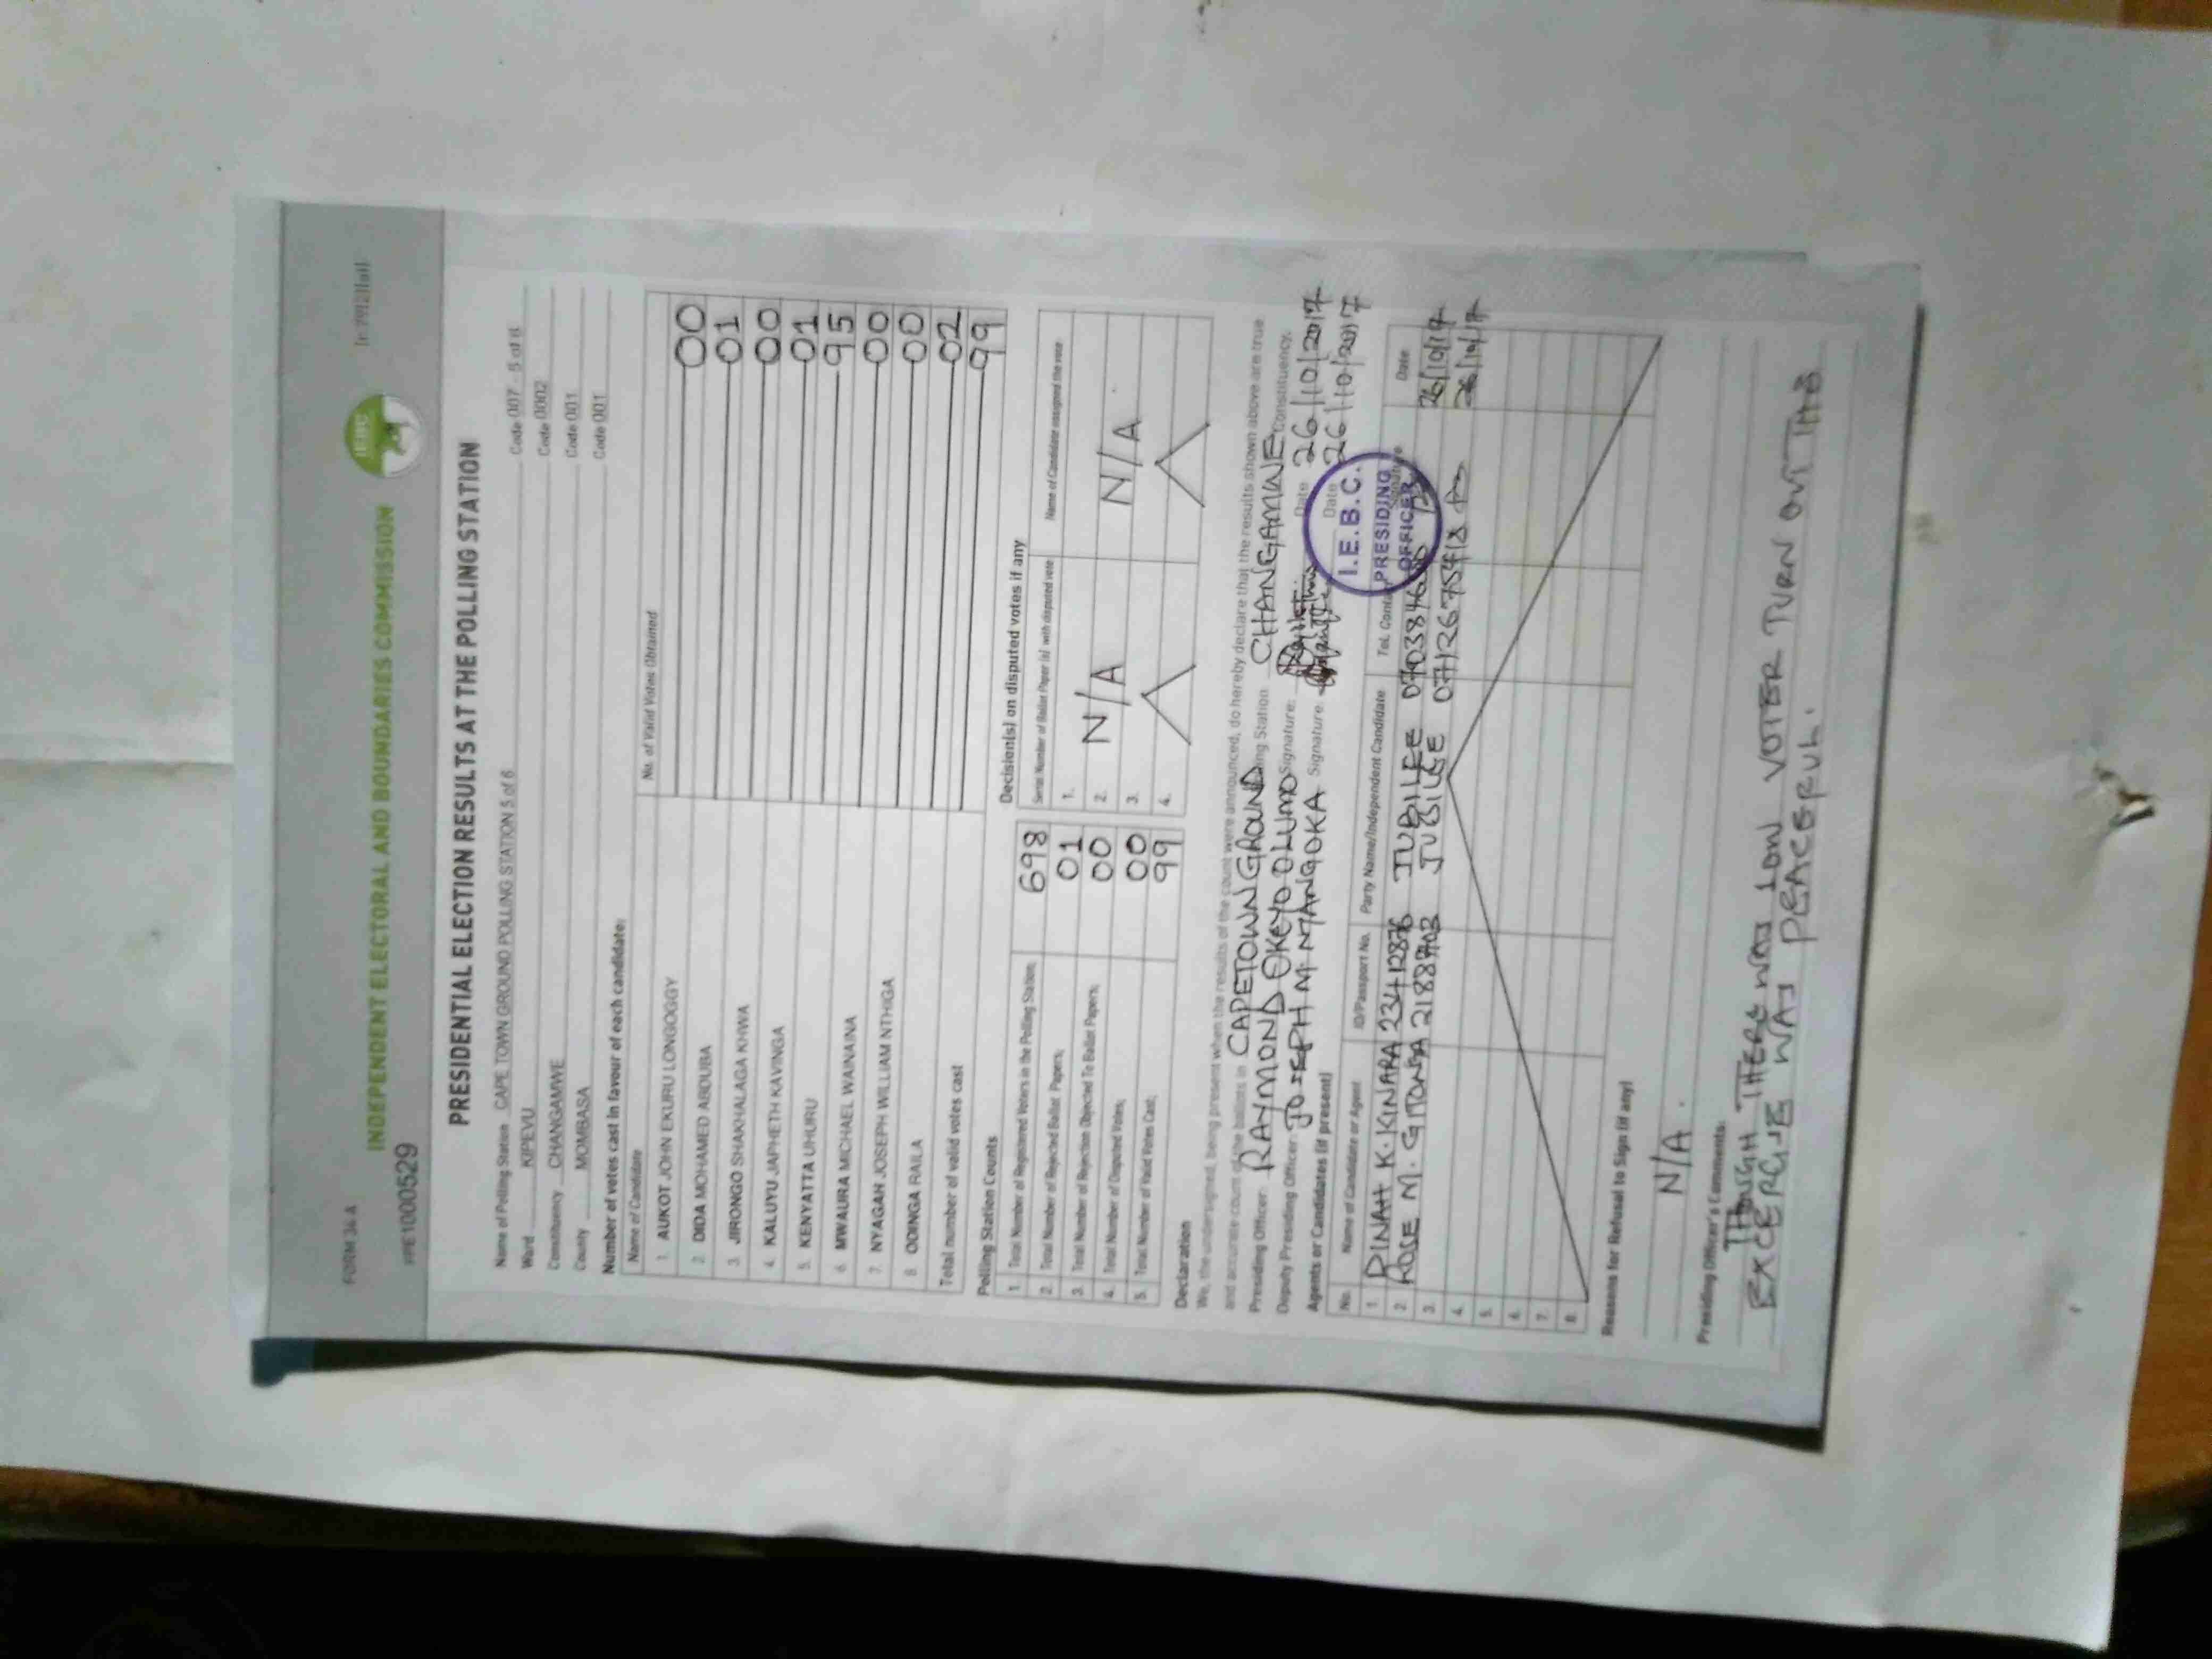 FORM 34 A
INDEPENDENT ELECTORAL AND BOUNDARIES COMMISSION
IEBC
PPE1000529
PRESIDENTIAL ELECTION RESULTS AT THE POLLING STATION
Name of Polling Station CAPE TOWN GROUND POLLING STATION 5 of 6 Code 007
Ward KIPEVU Code 0002
Constituency CHANGAMWE Code 001
County MOMBASA Code 001
Number of votes cast in favour of each candidate:
Name of Candidate No. of Valid Votes Obtained
1. AUKOT JOHN EKURU LONGOGGY 00
2. DIDA MOHAMED ABDUBA 01
3. JIRONGO SHAKHALAGA KHWA 00
4. KALUYU JAPHETH KAVINGA 01
5. KENYATTA UHURU 95
6. MWAURA MICHAEL WAINAINA 00
7. NYAGAH JOSEPH WILLIAM NTHIGA 00
8. ODINGA RAILA 02
Total number of valid votes cast 99
Polling Station Counts
1. Total Number of Registered Voters in the Polling Station; 698
2. Total Number of Rejected Ballot Papers; 01
3. Total Number of Rejection Objected To Ballot Papers; 00
4. Total Number of Disputed Votes; 00
5. Total Number of Valid Votes Cast; 99
Decision(s) on disputed votes if any
Serial Number of Ballot Paper (s) with disputed vote Name of Candidate assigned the vote
1.
2. N/A N/A
3.
4.
Declaration
We, the undersigned, being present when the results of the count were announced, do hereby declare that the results shown above are true
and accurate count of the ballots in CAPETOWN GROUND Polling Station CHANGAMWE Constituency.
Presiding Officer: RAYMOND OKEYO OLUMO Signature: Date 26/10/2017
Deputy Presiding Officer: JOSEPH M. NTANGOKA Signature: Date 26/10/2017
I.E.B.C.
PRESIDING
OFFICER
Agents or Candidates (if present)
No. Name of Candidate or Agent ID/Passport No. Party Name/Independent Candidate Tel. Contact Signature Date
1. DINAH K. KINARA 23412876 JUBILEE 26/10/17
2. ROSE M. GITONGA JUBILEE 26/10/17
3.
4.
5.
6.
7.
8.
Reasons for Refusal to Sign (if any)
N/A.
Presiding Officer's Comments:
THOUGH THERE WAS LOW VOTER TURN OUT THE
EXCERCISE WAS PEACEFUL.